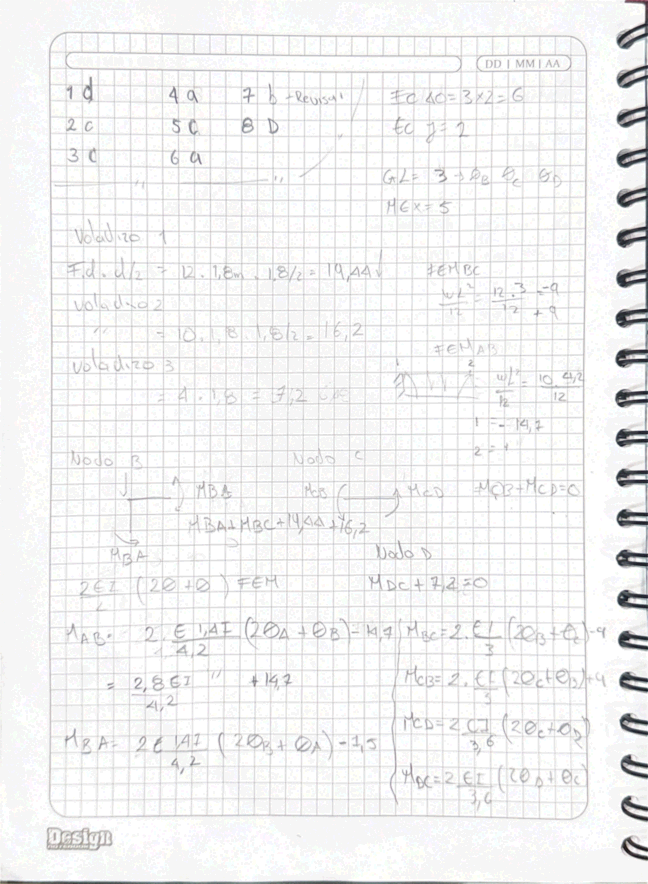 DD | MM | AA
1 d 4 a 7 b - Revisar
2 c 5 c 8 D
3 c 6 a
Ec Δc = 3 x 2 = 6
Ec y = 2
GL = 3 → θB θC θD
MEX = 5
Voladizo 1
F.d. d/2 = 12 . 1,8m . 1,8/2 = 19,44 ↓
voladizo 2
" = 10 . 1,8 . 1,8/2 = 16,2
voladizo 3
= 4 . 1,8 = 7,2
FEM BC
wL²/12 = 12.3/12 = -9
+9
FEM AB
1 2
wL²/12 = 10 4,2/12
1 = -14,7
2 = +
Nodo B Nodo C
MBA MCB MCD MCB + MCD = 0
MBA + MBC + 19,44 + 16,2
MBA
Nodo D
2EI/L (2θ + θ) FEM MDC + 7,2 = 0
MAB = 2 . E 1,4I/4,2 (2θA + θB) - 14,7
= 2,8 EI/4,2 " + 14,7
MBA = 2 E 1,4I/4,2 (2θB + θA) - 1,5
MBC = 2 . EI/3 (2θB + θC) - 9
MCB = 2 . EI/3 (2θC + θB) + 9
MCD = 2 EI/3,6 (2θC + θD)
MDC = 2 EI/3,6 (2θD + θC)
Design